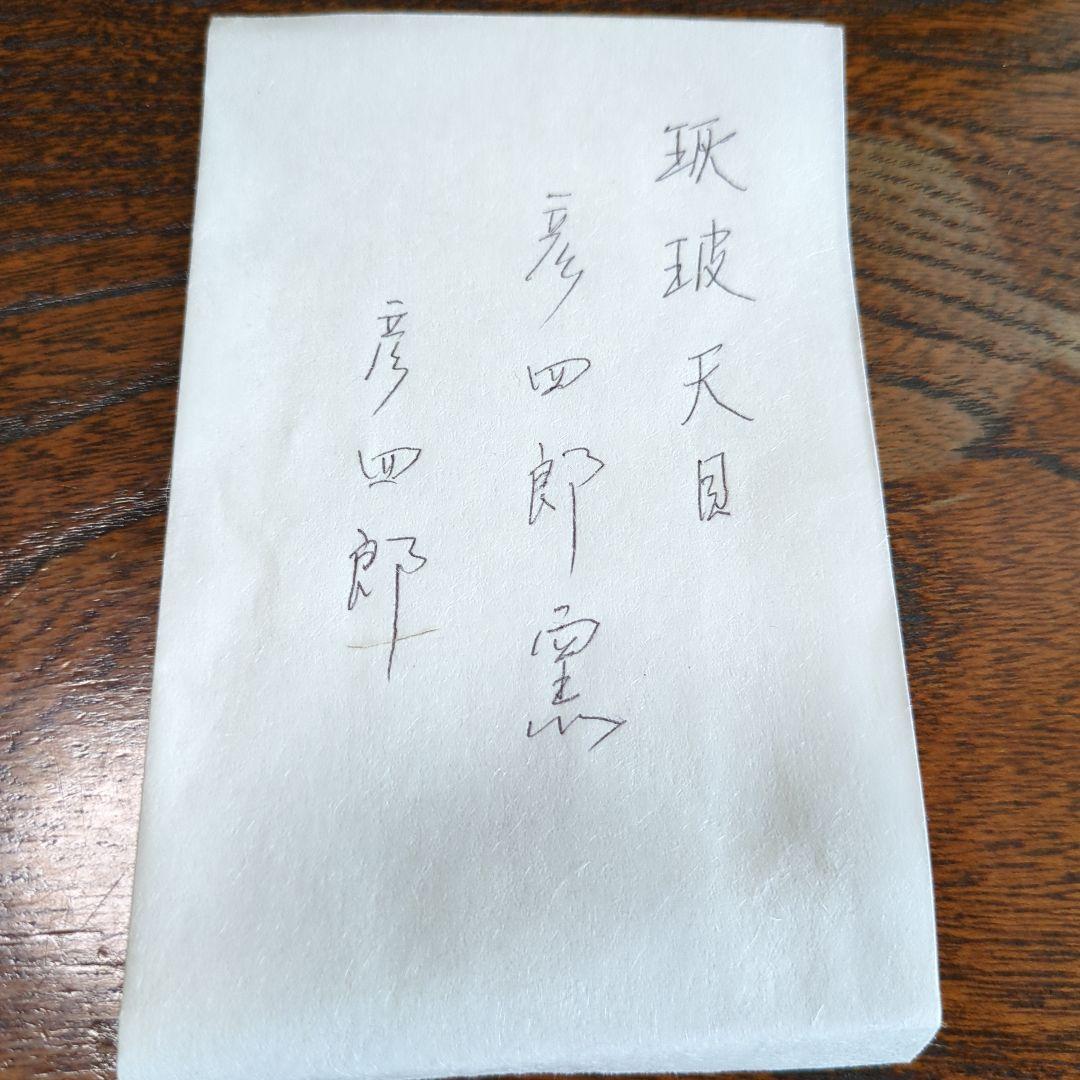 珷玻天目
彦四郎窯
彦四郎